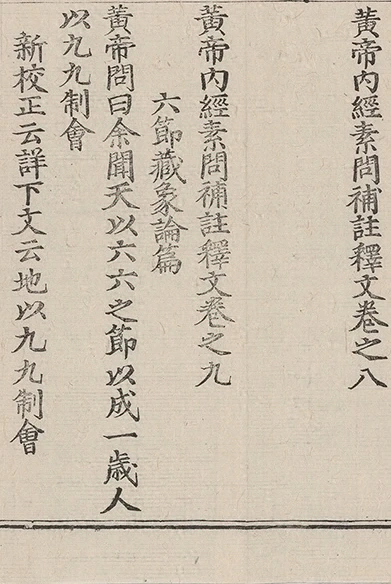 黄帝內經素問補註釋文卷之八
黄帝內經素問補註釋文卷之九
六節藏象論篇
黄帝問曰余聞天以六六之節以成一歲人
以九九制會
新校正云詳下文云地以九九制會